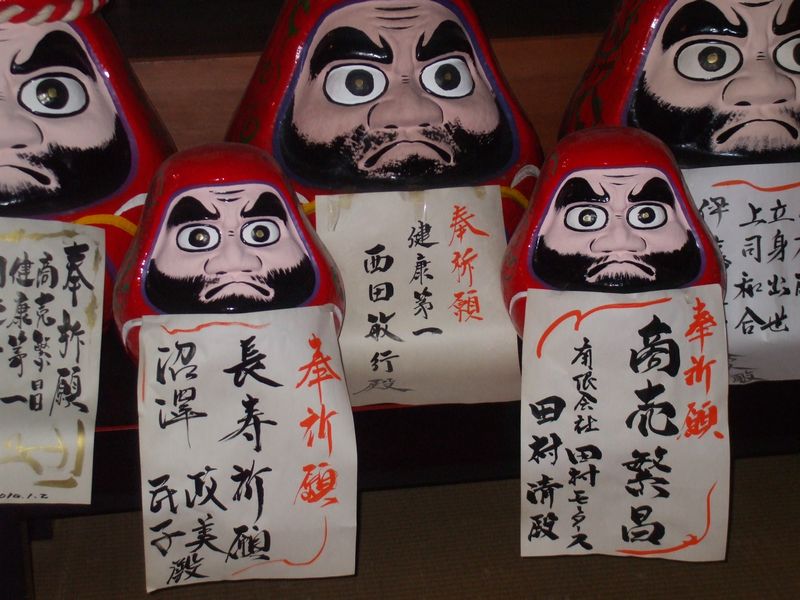 奉祈願
商売繁昌
健康第一
2010.1.2
奉祈願
長寿祈願
沼澤 政美殿
民子
奉祈願
健康第一
西田敏行殿
奉祈願
商売繁昌
有限会社 田村モータース
田村清殿
立身出世
上司和合